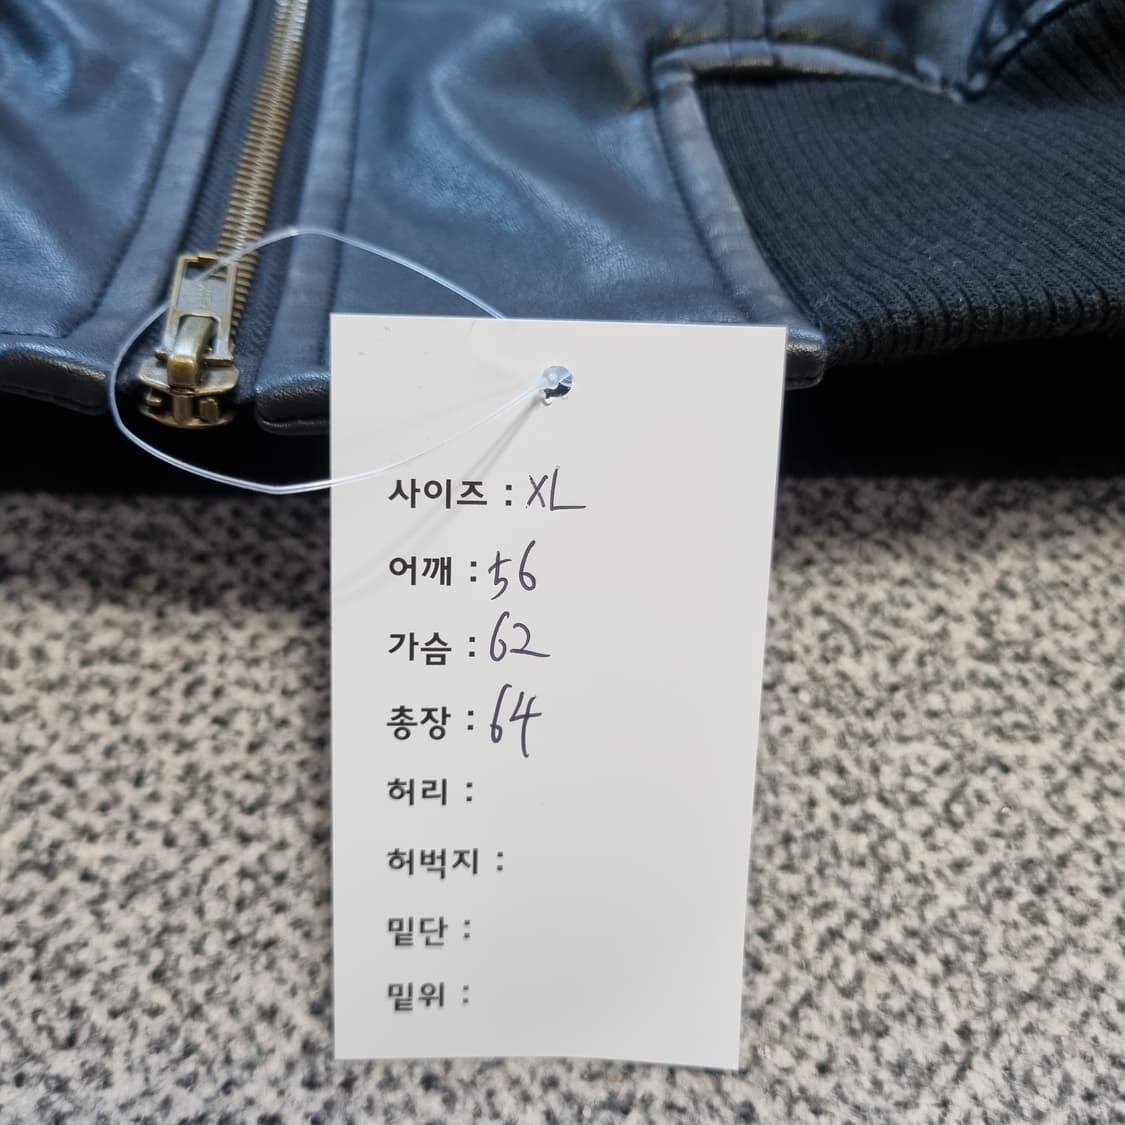 사이즈 : XL
어깨 : 56
가슴 : 62
총장 : 64
허리 :
허벅지 :
밑단 :
밑위 :